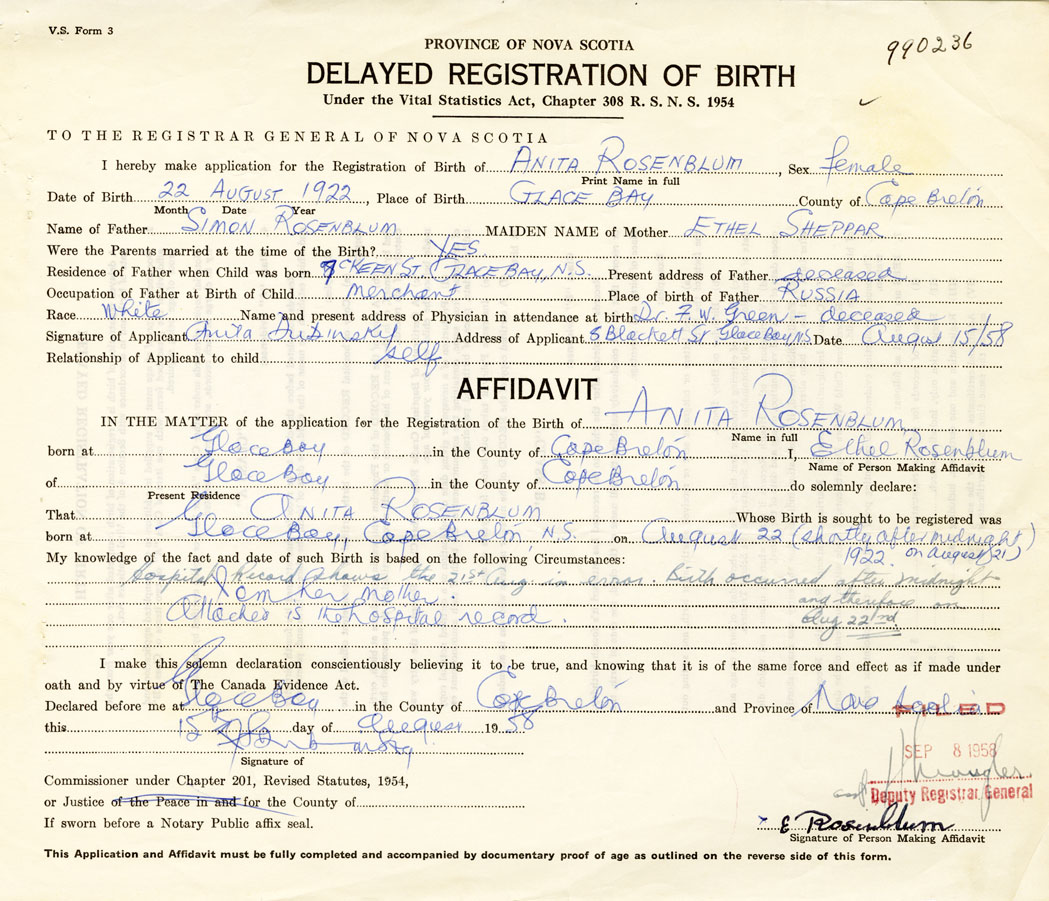 V.S. Form 3
990236
PROVINCE OF NOVA SCOTIA
DELAYED REGISTRATION OF BIRTH
Under the Vital Statistics Act, Chapter 308 R. S. N. S. 1954
TO THE REGISTRAR GENERAL OF NOVA SCOTIA
I hereby make application for the Registration of Birth of ANITA ROSENBLUM, Sex female
Print Name in full
Date of Birth 22 AUGUST 1922, Place of Birth GLACE BAY County of Cape Breton
Month Date Year
Name of Father SIMON ROSENBLUM MAIDEN NAME of Mother ETHEL SHEPPAR
Were the Parents married at the time of the Birth? YES
Residence of Father when Child was born McKEEN ST. GLACE BAY, N.S. Present address of Father deceased
Occupation of Father at Birth of Child Merchant Place of birth of Father RUSSIA
Race White Name and present address of Physician in attendance at birth Dr. F. W. Green – deceased
Signature of Applicant Anita Dubinsky Address of Applicant 8 Blackett St Glace Bay NS Date August 15/58
Relationship of Applicant to child self
AFFIDAVIT
IN THE MATTER of the application for the Registration of the Birth of ANITA ROSENBLUM
Name in full
born at Glace Bay in the County of Cape Breton I, Ethel Rosenblum
Name of Person Making Affidavit
of Glace Bay in the County of Cape Breton do solemnly declare:
Present Residence
That ANITA ROSENBLUM Whose Birth is sought to be registered was
born at Glace Bay, Cape Breton, N.S. on August 22 (shortly after midnight
1922 on August 21)
My knowledge of the fact and date of such Birth is based on the following Circumstances:
Hospital Record shows the 21st Aug in error. Birth occurred after midnight
and therefore on
Aug 22nd
I am her mother.
Attached is the hospital record.
I make this solemn declaration conscientiously believing it to be true, and knowing that it is of the same force and effect as if made under
oath and by virtue of The Canada Evidence Act.
Declared before me at Glace Bay in the County of Cape Breton and Province of Nova Scotia
FILED
this 15 day of August 19 58
Signature of
SEP 8 1958
Commissioner under Chapter 201, Revised Statutes, 1954,
Deputy Registrar General
or Justice of the Peace in and for the County of
If sworn before a Notary Public affix seal.
E Rosenblum
Signature of Person Making Affidavit
This Application and Affidavit must be fully completed and accompanied by documentary proof of age as outlined on the reverse side of this form.